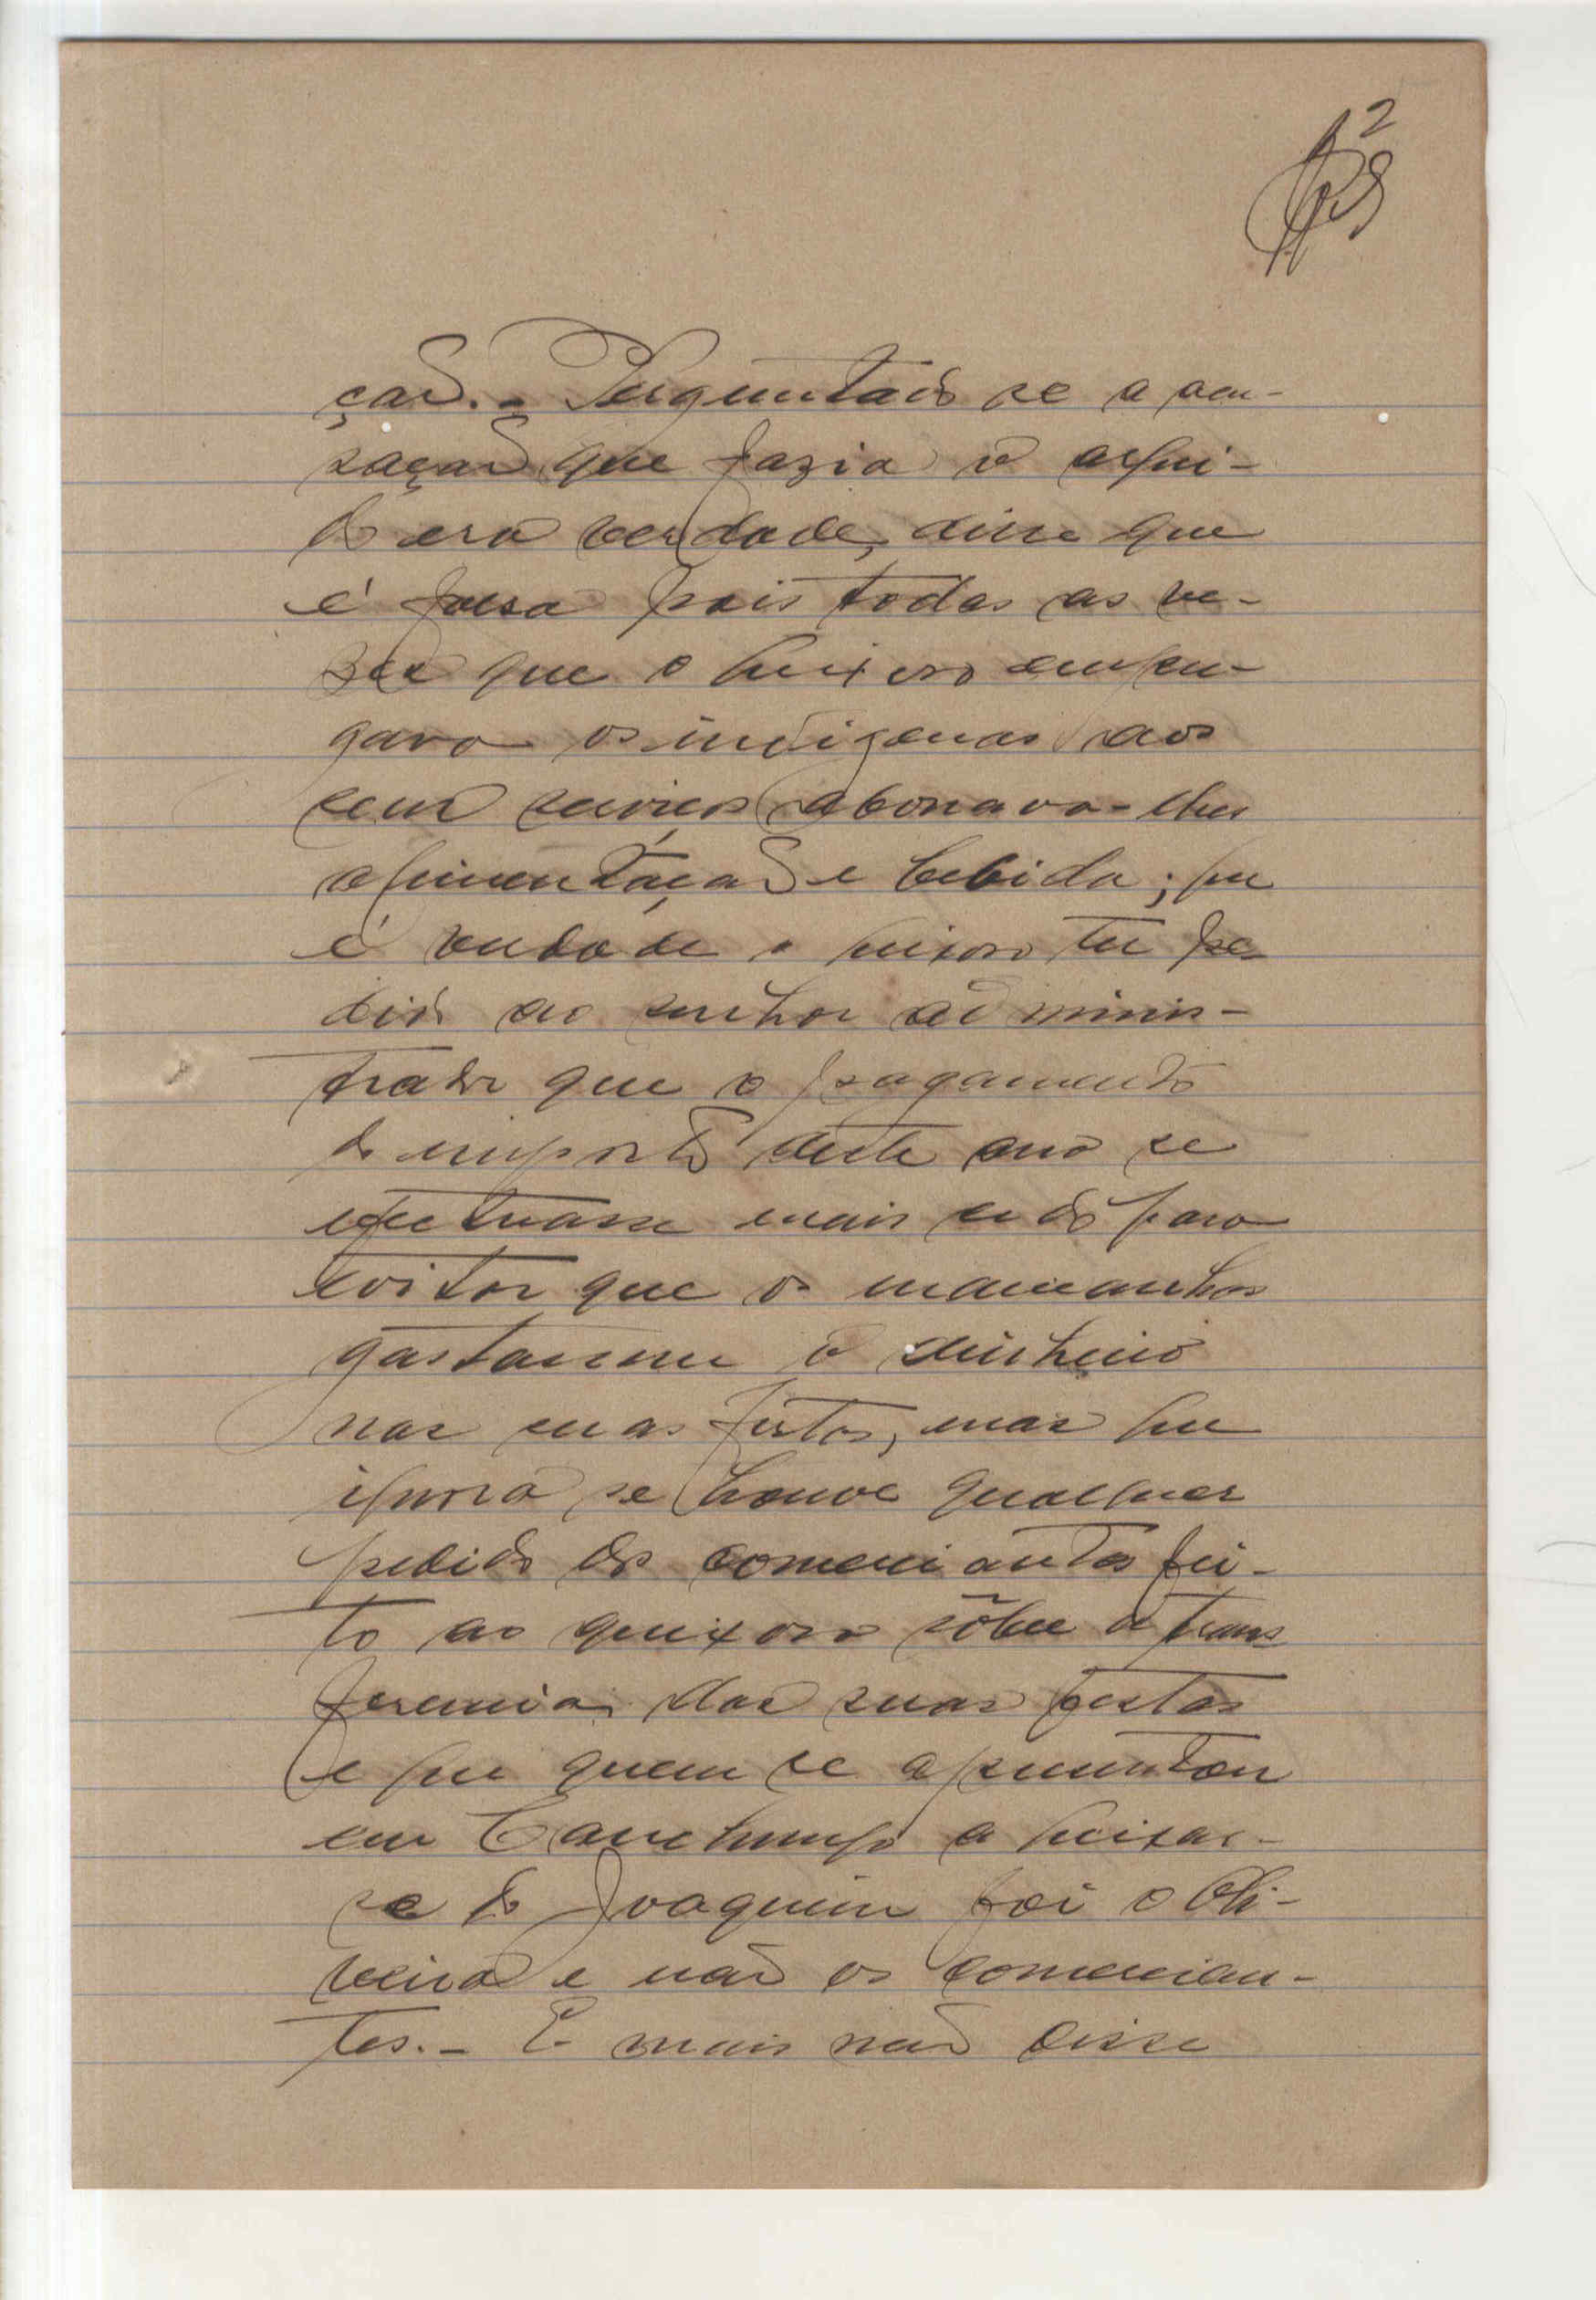 2
ção. - Perguntado se a acu-
sação que fazia o arqui-
do era verdade, disse que
é falsa pois todas as ve-
zes que o queixoso empre-
gava os indigenas aos
seus serviços abonava-lhes
alimentação e bebida; que
é verdade o queixoso ter pe-
dido ao senhor adminis-
trador que o pagamento
do imposto deste ano se
efectuasse mais cedo para
evitar que os mancanhas
gastassem o dinheiro
nas suas festas, mas que
ignora se houve qualquer
pedido dos comerciantes fei-
to ao queixoso sôbre a trans
ferencia das suas festas
e que quem se apresentou
em Canchungo a queixar-
se do Joaquim foi o Oli-
veira e não os comercian-
tes. - E mais não disse